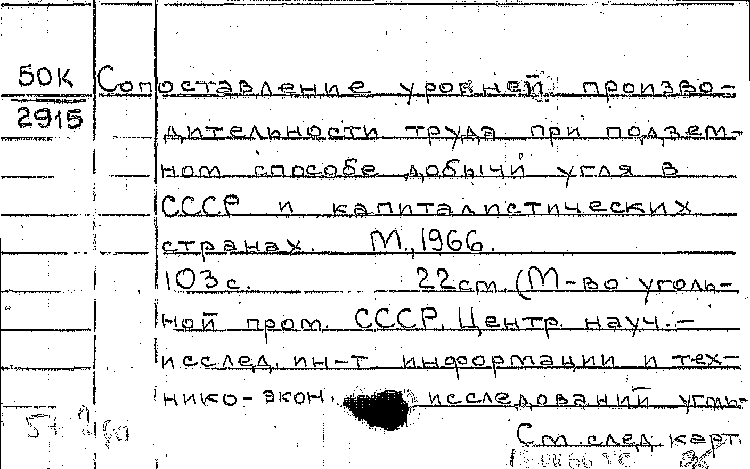 50К Сопоставление уровней произво-
2915 дительности труда при подзем-
ном способе добычи угля в
СССР и капиталистических
странах. М., 1966.
103 с. 22 см. (М-во уголь-
ной пром. СССР. Центр. науч.-
исслед. ин-т информации и тех-
нико-экон. исследований уголь-
См. след. карт.